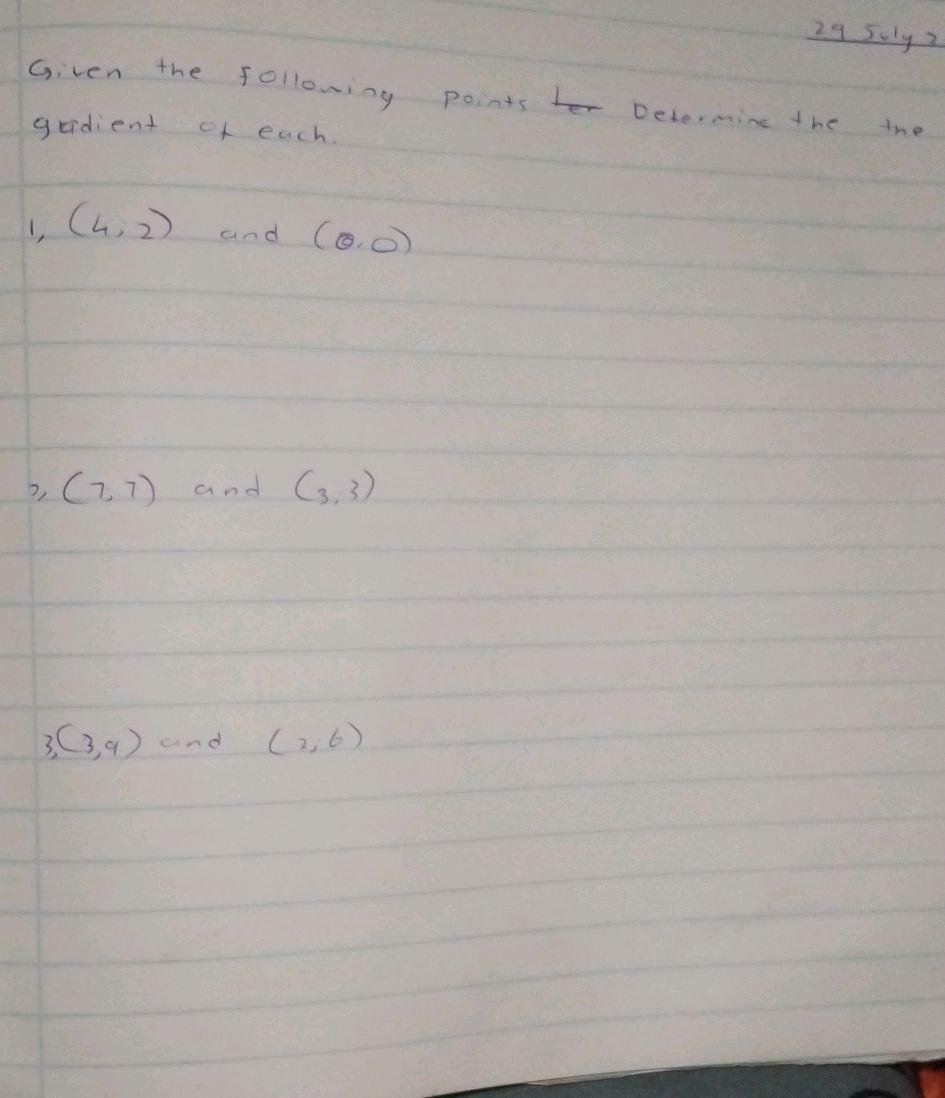 29 July 2
Given the following points Determine the the
gradient of each.
1, (4;2) and (0,0)
2, (7;7) and (3,3)
3,(3,9) and (2,6)